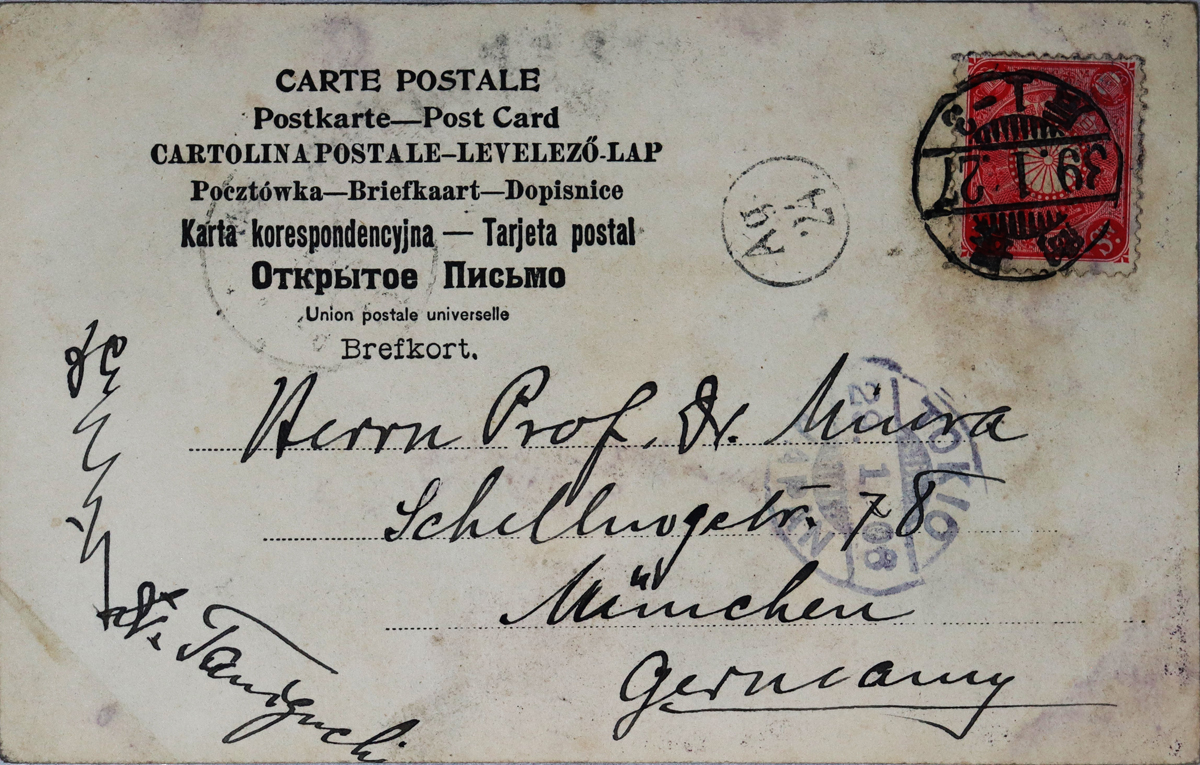 CARTE POSTALE
Postkarte—Post Card
CARTOLINA POSTALE–LEVELEZŐ-LAP
Pocztówka—Briefkaart—Dopisnice
Karta korespondencyjna — Tarjeta postal
Открытое Письмо
Union postale universelle
Brefkort.
39.1.27
TOKIO
Herrn Prof. Dr. Miura
Schellingstr. 78
München
Germany
Taniguchi